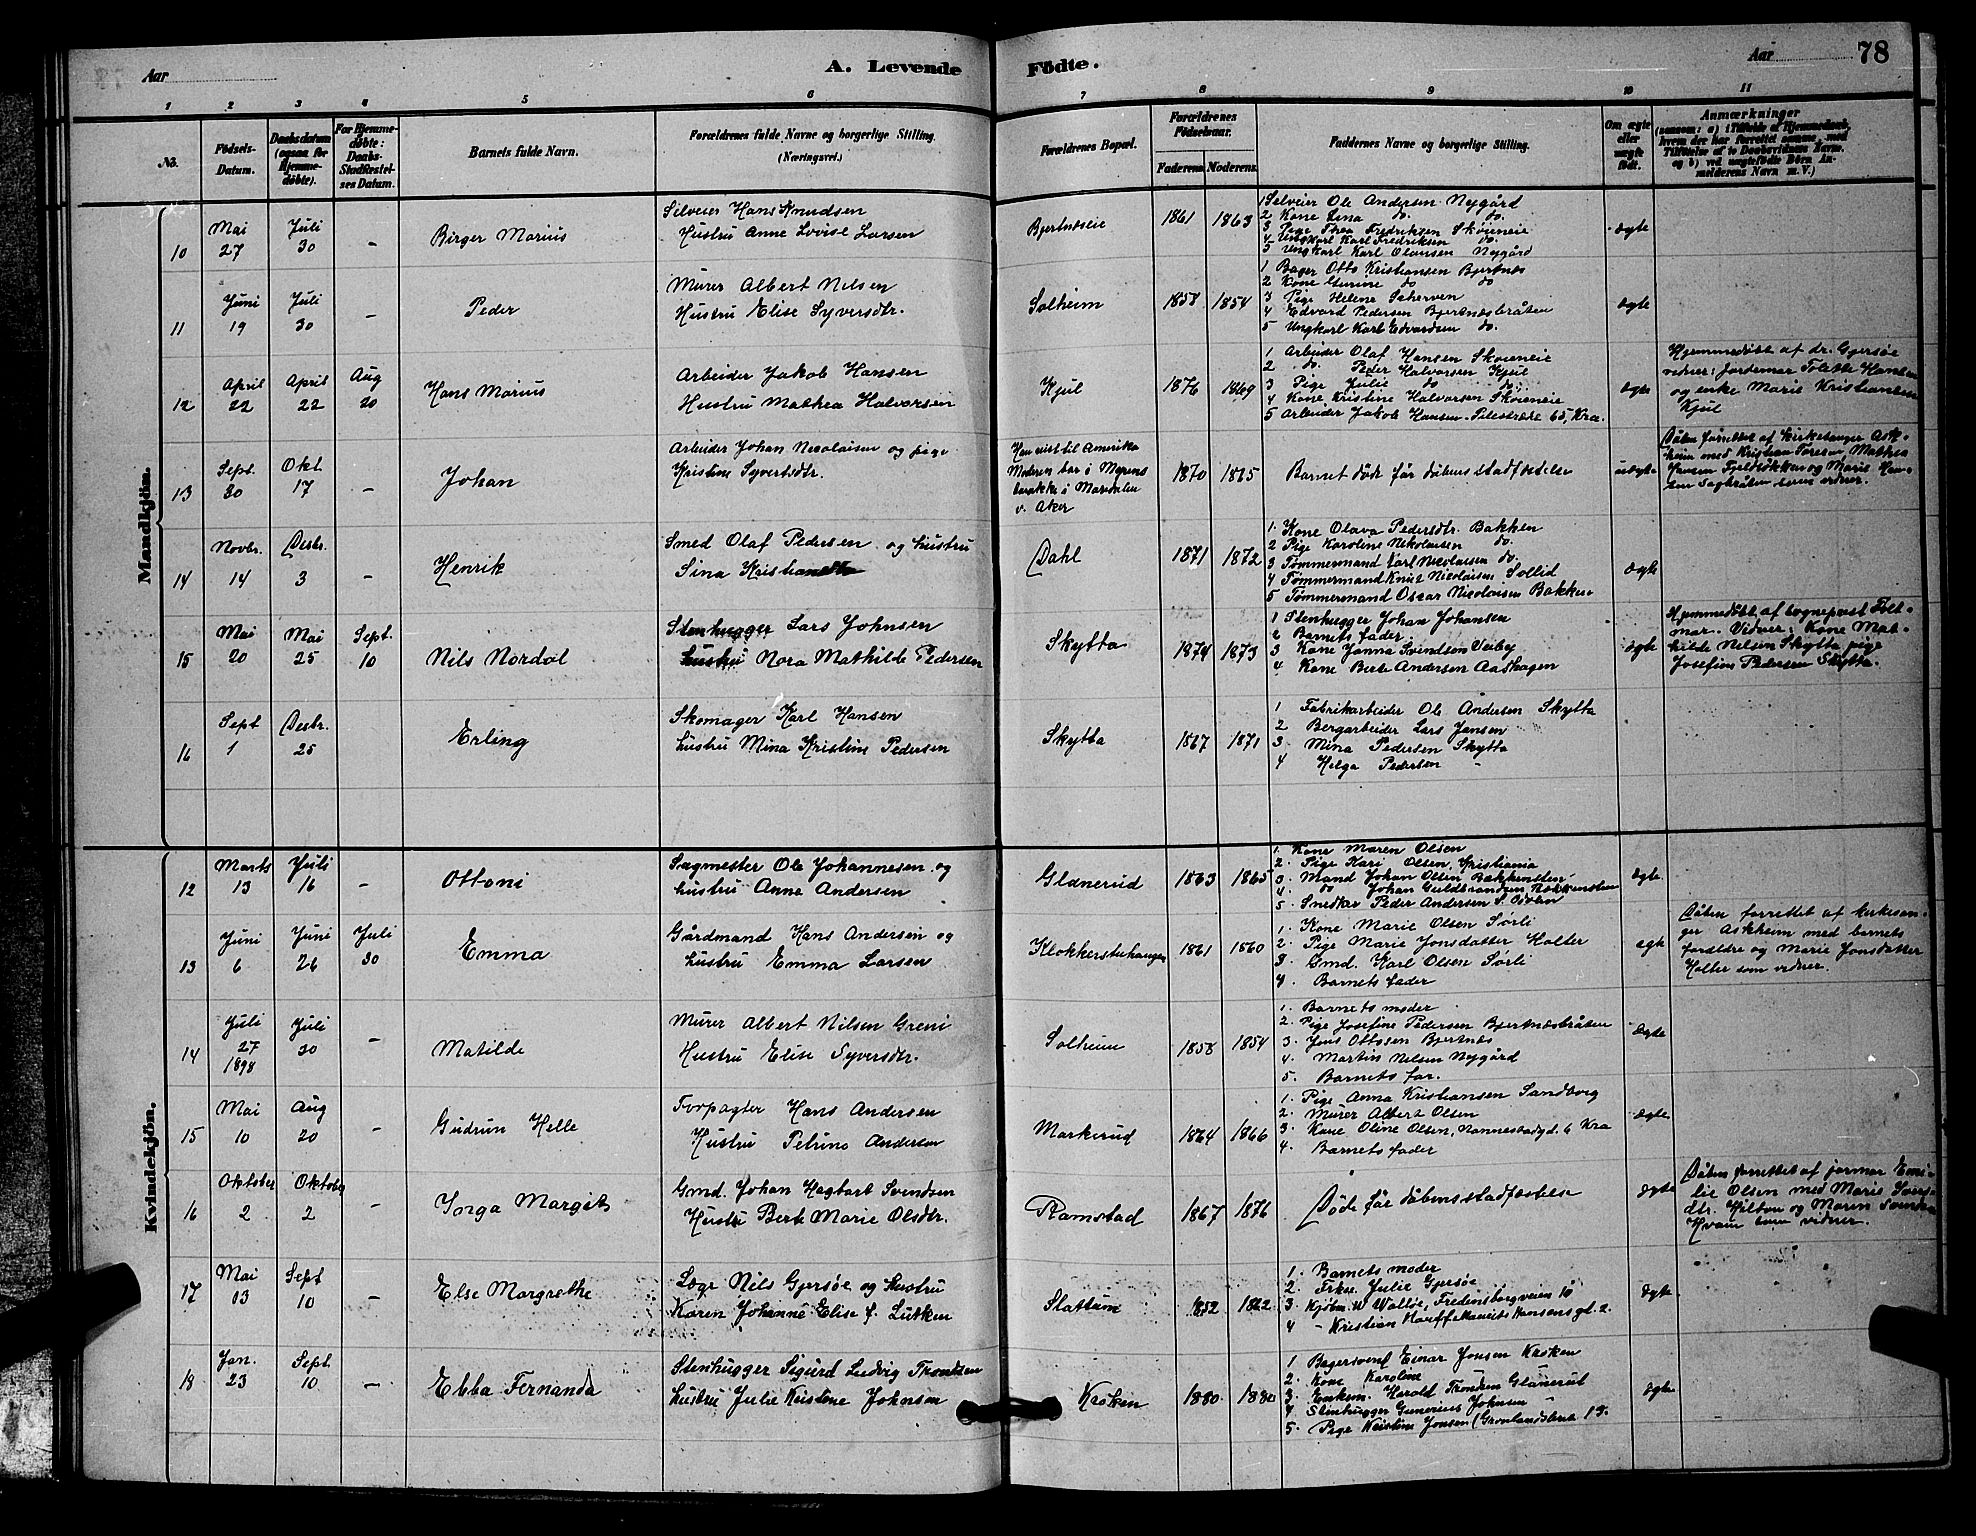 Aar
A. Levende
Födte.
Aar
78
1 2 3 4 5 6 7 8 9 10 11
No.
Födsels-Datum.
Daabsdatum (ogsaa for Hjemme-döbte).
For Hjemme-döbte: Daabs-Stadfæstel-ses Datum.
Barnets fulde Navn.
Forældrenes fulde Navne og borgerlige Stilling. (Næringsvei.)
Forældrenes Bopæl.
Forældrenes Födselsaar.
Faderens. Moderens.
Faddernes Navne og borgerlige Stilling.
Om ægte eller uægte födt.
Anmærkninger
Mandkjön.
10
Mai 27
Juli 30
-
Birger Marius
Selveier Hans Knudsen
Hustru Anne Lovise Larsen
Bjertnæseie
1861 1863
1 Selveier Ole Andersen Nygård
2 Kone Lina do. do
3 Pige Thea Fredriksen Skoieneie
4 Ungkarl Karl Fredriksen do.
5 Ungkarl Karl Olausen Nygård
ægte
11
Juni 19
Juli 30
-
Peder
Murer Albert Nilsen
Hustru Elise Syversdtr.
Solheim
1858 1854
1 Bager Otto Kristiansen Bjertnæs
2 Kone Gurine do do
3 Pige Helene Scherven
4 Edvard Pedersen Bjertnæsbråten
5 Ungkarl Karl Edvardsen do.
ægte
12
April 22
April 22
Aug 20
Hans Marius
Arbeider Jakob Hansen
Hustru Mathea Halvorsen
Kjul
1876 1869
1 Arbeider Olaf Hansen Skoieneie
2 do. Peder Halvorsen Kjul
3 Pige Julie do do.
4 Kone Kristine Halvorsen Skoieneie
5 Arbeider Jakob Hansen, Pilestræde 65, Kra.
ægte
Hjemmedöbt af dr. Gjersöe
vidner: Jordemor Tolette Hansen
og enke Marie Kristiansen
Kjul
13
Sept. 30
Okt. 17
-
Johan
Arbeider Johan Nicolaisen og pige
Kristine Syvertsdtr.
Han reist til Amerika
Moderen bor i Myrens
barakke i Maridalen
v. Aker
1870 1865
Barnet døde før dåbens stadfestelse
uægte
Dåben forrettet af kirkesanger Ask-
heim med Kristian Toresen, Mathea
Hansen Fjeldsökken og Marie Han-
sen Sagbråten som vidner.
14
Novbr. 14
Desbr. 3
-
Henrik
Smed Olaf Pedersen og hustru
Sina Kristiansdtr.
Dahl
1871 1872
1. Kone Olava Pedersdtr. Bakken
2 Pige Karoline Nikolaisen do.
3 Tømmermand Karl Nicolaisen do.
4 Tømmermand Knut Nicolaisen Sollid
5 Tømmermand Oscar Nicolaisen Bakken
ægte
15
Mai 20
Mai 25
Sept. 10
Nils Nordal
Stenhugger Lars Johnsen
hustru Nora Mathilde Pedersen
Skytta
1874 1873
1 Stenhugger Johan Johansen
2 Barnets fader
3 Kone Janna Svindsen Veiby
4 Kone Berte Andersen Aashagen
ægte
Hjemmedöbt af sogneprest Folk-
mar. Vidner: Kone Mat-
hilde Nelsen Skytta, pige
Josefine Pedersen Skytta.
16
Sept 1
Desbr. 25
Erling
Skomager Karl Hansen
hustru Mina Kristine Pedersen
Skytta
1867 1871
1 Fabrikarbeider Ole Andersen Skytta
2 Bergarbeider Lars Jansen
3 Mina Pedersen Skytta
4 Helga Pedersen -
Kvindekjön.
12
Marts 13
Juli 16
-
Ottoni
Sagmester Ole Johannesen og
hustru Anne Andersen
Glænerud
1863 1865
1. Kone Maren Olsen
2. Pige Kari Olsen, Kristiania
3. Mand Johan Olsen Bækkensten
4. do Johan Guldbrandsen Bækkensten
5. Snedker Peder Andersen
ægte
13
Juni 6
Juni 26
Juli 30
Emma
Gårdmand Hans Andersen og
hustru Emma Larsen
Klokkerstuhaugen
1861 1860
1. Kone Marie Olsen Sørli
2. Pige Marie Jonsdatter Holter
3. Gmd. Karl Olsen Sørli
4. Barnets fader
ægte
Dåben forrettet af kirkesan-
ger Askheim med barnets
forældre og Marie Jonsdatter
Holter som vidner.
14
Juli 27 1898
Juli 30
-
Matilde
Murer Albert Nilsen Greni
Hustru Elise Syversdtr.
Solheim
1858 1854
1. Barnets moder
2. Pige Josefine Pedersen Bjertnæsbråten
3. Jens Ottosen Bjertnæs
4. Martin Nelsen Nygård
5. Barnets far.
ægte
15
Mai 10
Aug 20
-
Gudrun Helle
Forpagter Hans Andersen
Hustru Petrine Andersen
Markerud
1864 1866
1. Pige Anna Kristiansen Sandbög
2. Murer Albert Olsen
3. Kone Oline Olsen, Nannestadgd. 6 Kra
4. Barnets fader
ægte
16
Oktober 2
Oktober 2
-
Inga Margit
Gmd. Johan Hagbart Svendsen
Hustru Berte Marie Olsdtr.
Ramstad
1867 1876
Døde før dåbens stadfæstelse
ægte
Dåben forrettet af jormor Emi-
lie Olsen med Marie Svens-
dtr. Hilton og Maren
Hvam som vidner.
17
Mai 13
Sept 10
-
Else Margrethe
Læge Nils Gjersöe og hustru
Karen Johanne Elise f. Lütken
Slattum
1852 1862
1. Barnets moder
2. Frkn. Julie Gjersöe
3. Kjøbm. W Walløe, Fredensborgveien 10
4 - Kristian Hauff Maurits Hansens gd. 2.
ægte
18
Jan. 23
Sept. 10
-
Ebba Fernanda
Stenhugger Sigurd Ludvig Trondsen
hustru Julie Kristine Johnsen
Kroken
1880 1880
1 Bagersvend Einar Jonsen Kroken
2. Kone Karoline
3. Harald Trondsen Glanerud
4 Stenhugger Gunerius Johnsen
5. Pige Kristine Jonsen
ægte